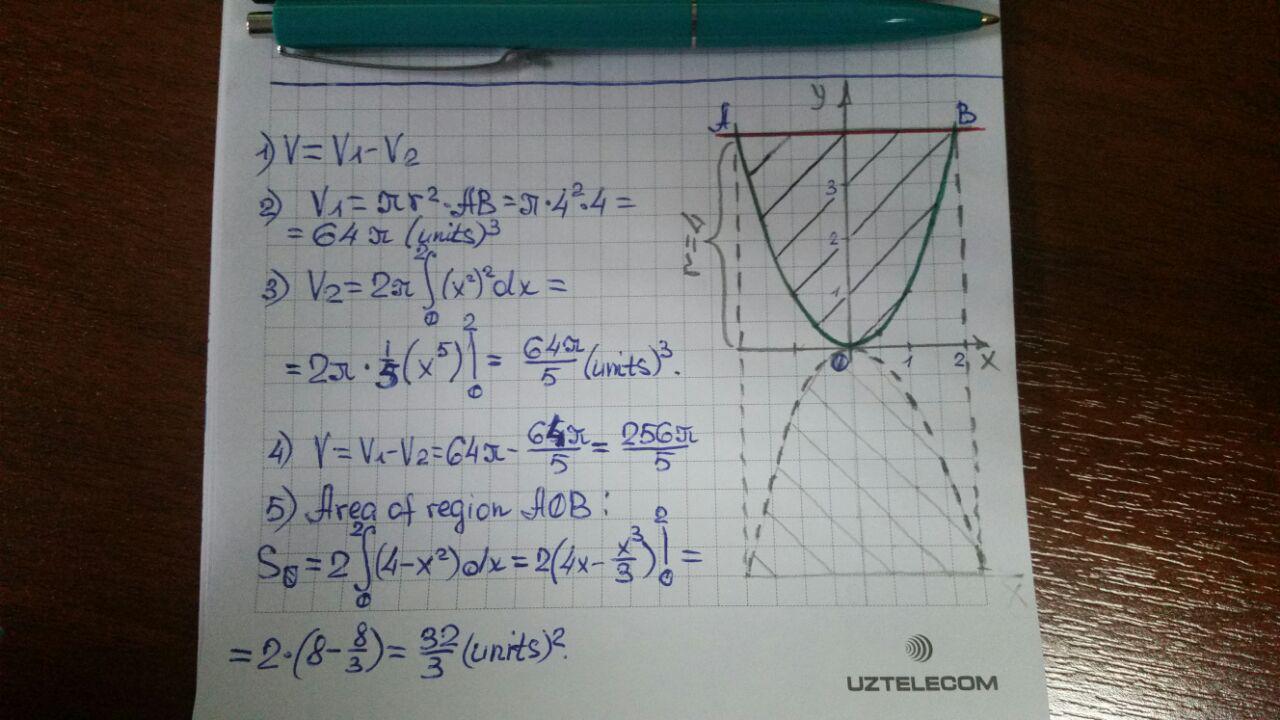 1) V = V₁ - V₂
2) V₁ = πr²·AB = π·4²·4 =
= 64π (units)³
3) V₂ = 2π ∫₀² (x²)² dx =
= 2π · 1/5 (x⁵) |₀² = 64π/5 (units)³.
4) V = V₁ - V₂ = 64π - 64π/5 = 256π/5
5) Area of region AOB:
S₀ = 2 ∫₀² (4 - x²) dx = 2(4x - x³/3) |₀² =
= 2·(8 - 8/3) = 32/3 (units)².
y
A
B
3
2
1
r=4
0
1
2
x
x
UZTELECOM